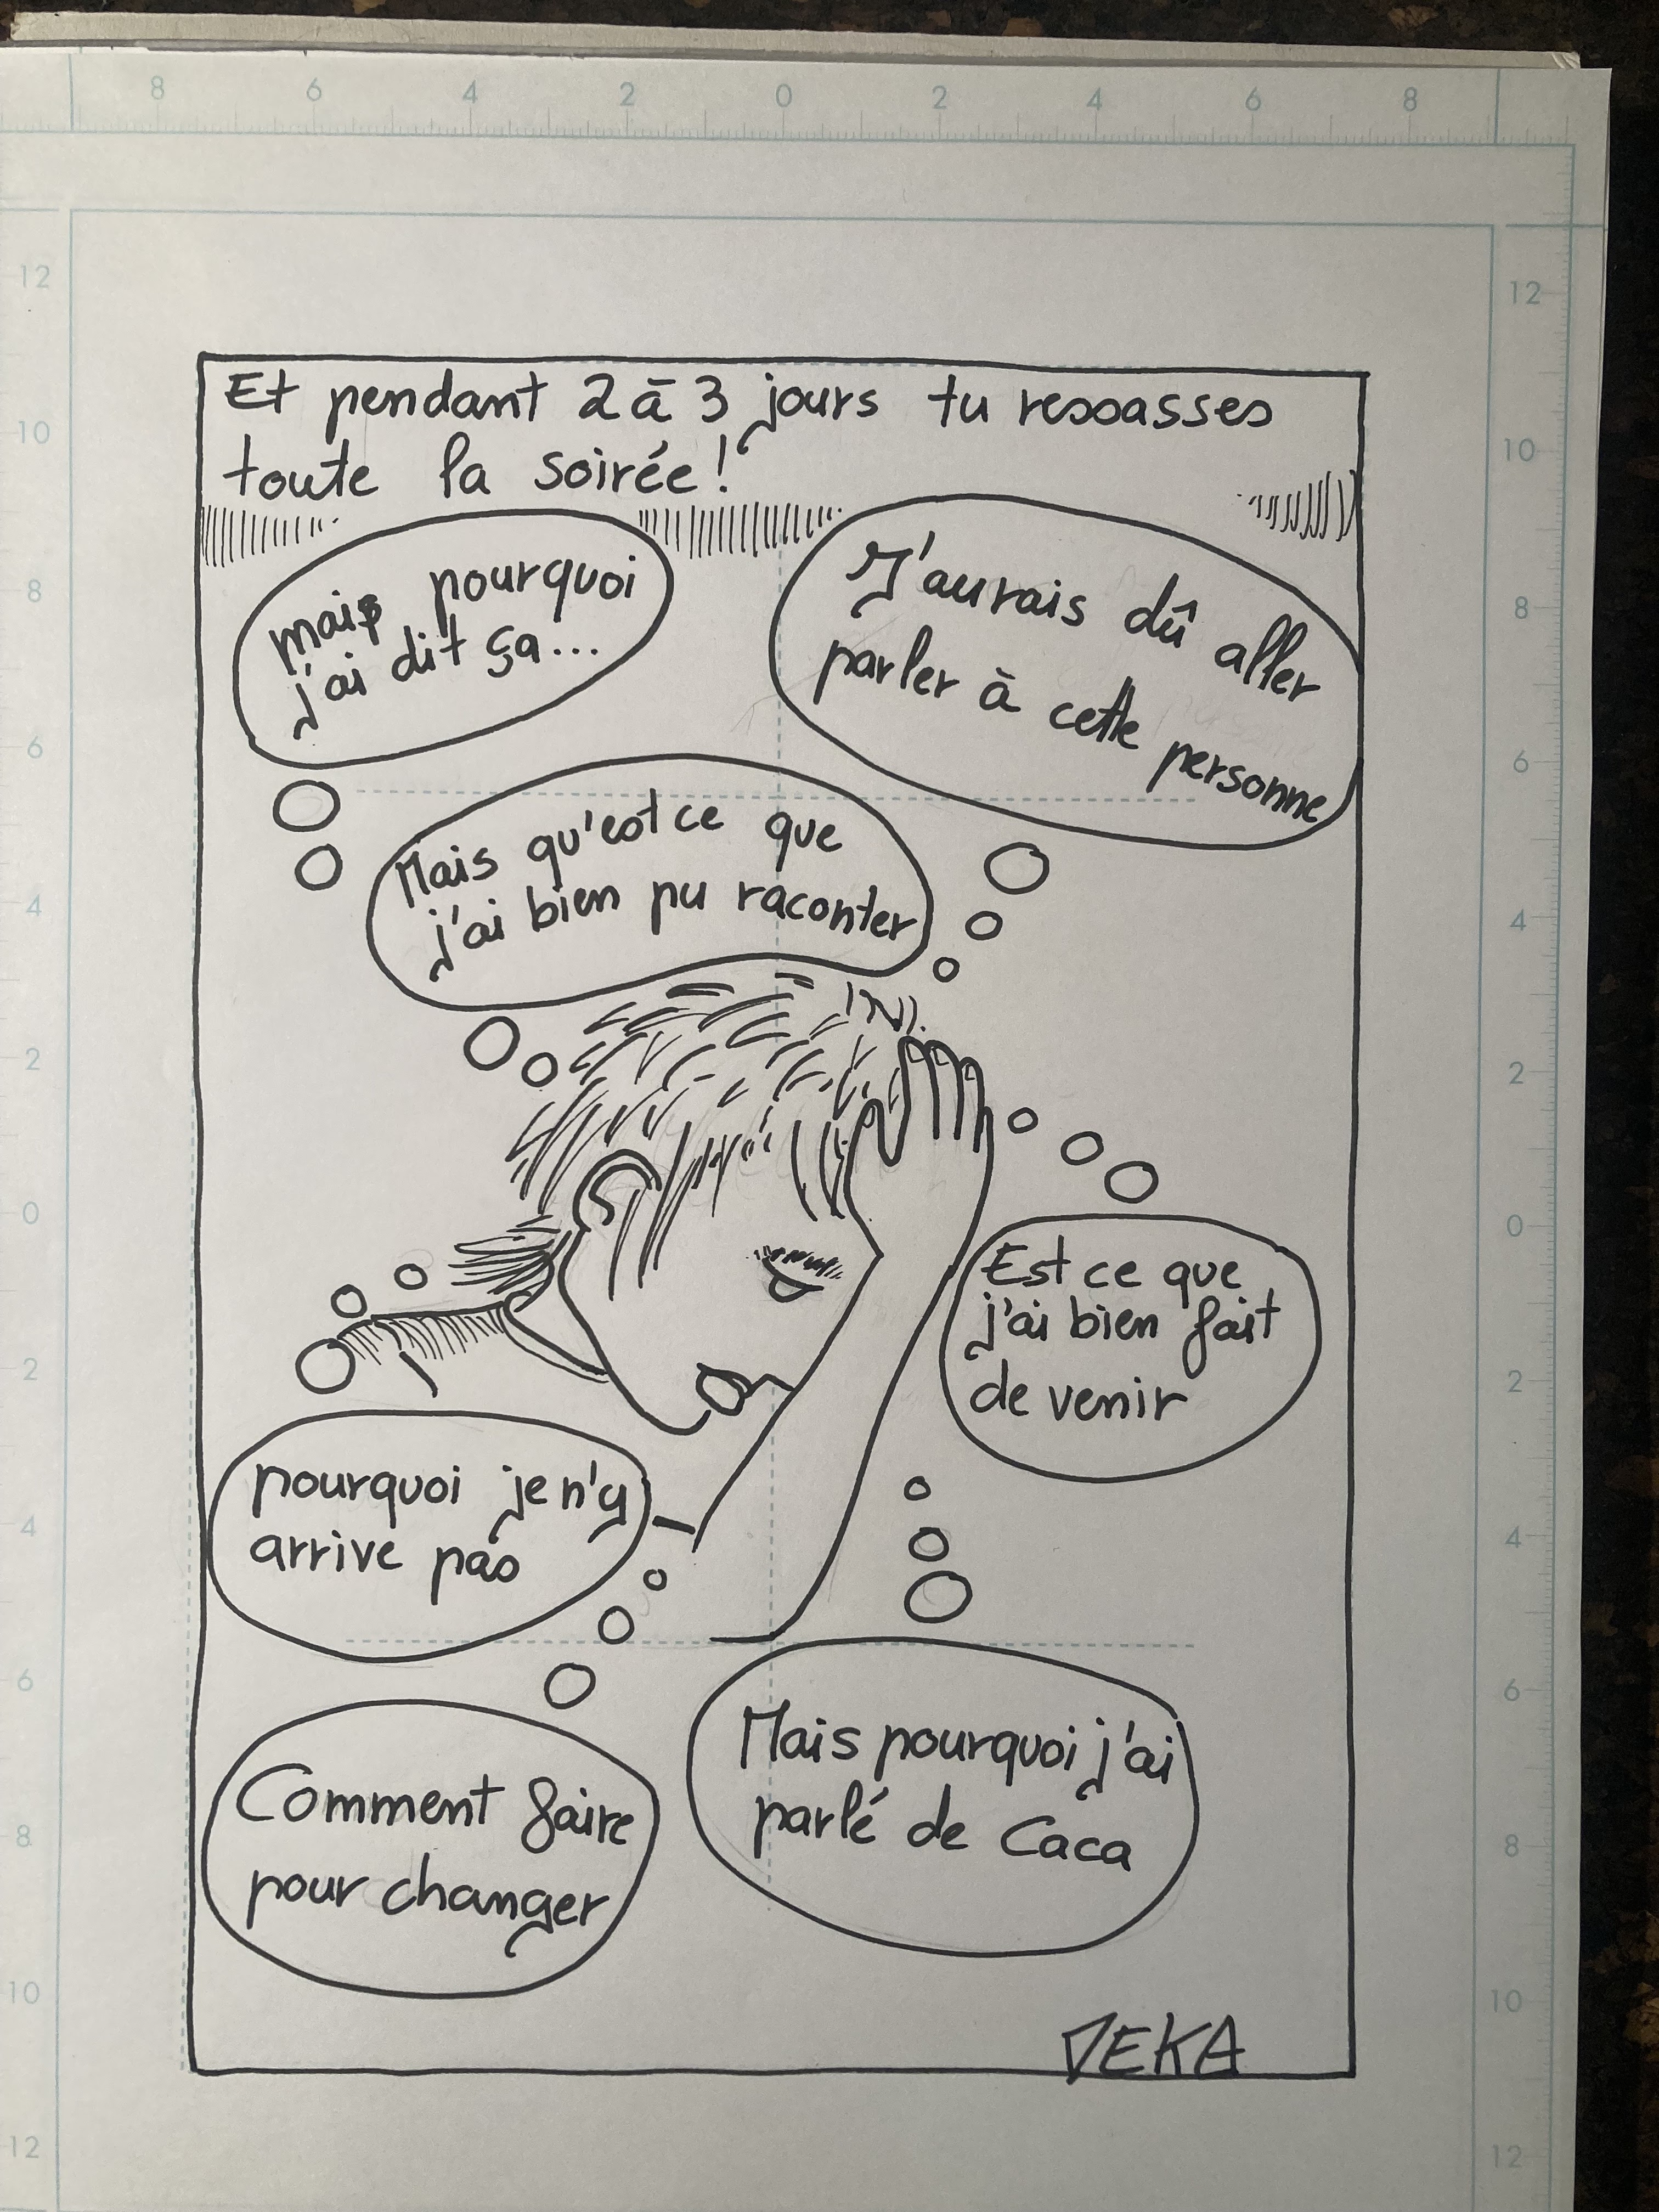 Et pendant 2 à 3 jours tu ressasses
toute la soirée!
mais pourquoi
j'ai dit ça...
J'aurais dû aller
parler à cette personne
Mais qu'est ce que
j'ai bien pu raconter
Est ce que
j'ai bien fait
de venir
pourquoi je n'y
arrive pas
Comment faire
pour changer
Mais pourquoi j'ai
parlé de Caca
DEKA
8 6 4 2 0 2 4 6 8
12 12
10 10
8 8
6 6
4 4
2 2
0 0
2 2
4 4
6 6
8 8
10 10
12 12